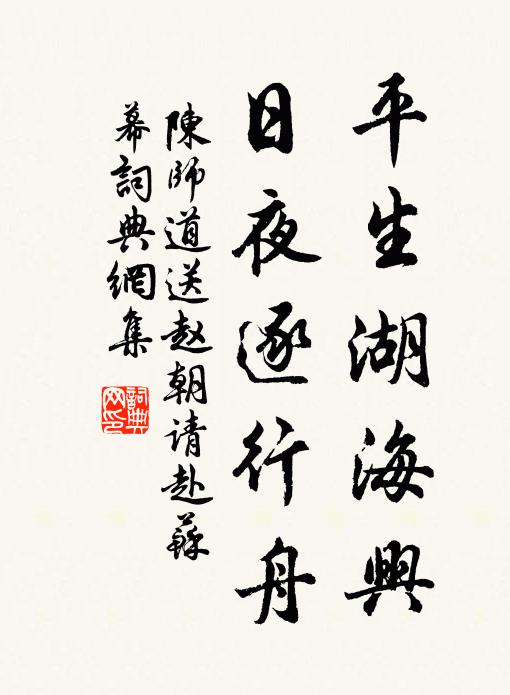 平生湖海興
日夜逐行舟
陳師道送赵朝请赴蘇
幕詞典網集
詞典
网印